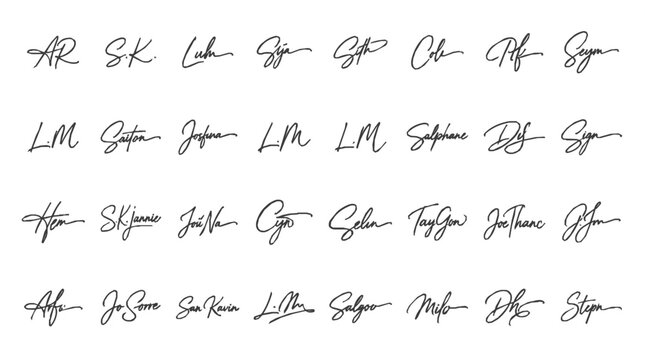 AR S.K. Lulu Sija Sith Cole Seym
L.M Saiton Joshua L.M L.M Salphane Sign
Hem S.K.jannie JouNa Cyn Selin TayGon JoeThanc
Jo Sorre San Kavin L.M Salgoo Milo Dh Stepn